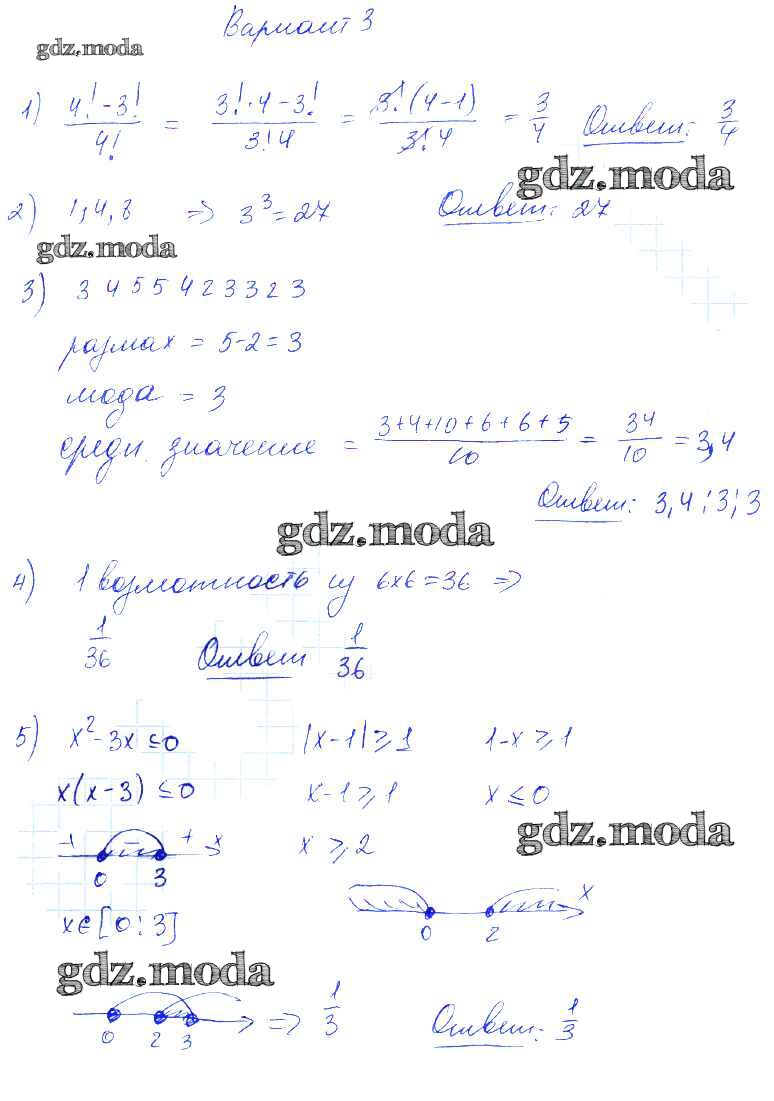 Вариант 3
gdz.moda
1) (4! - 3!)/4! = (3! · 4 - 3!)/(3! 4) = (3! (4-1))/(3! 4) = 3/4 Ответ: 3/4
gdz.moda
2) 1, 4, 8 => 3³ = 27 Ответ: 27
gdz.moda
3) 3 4 5 5 4 2 3 3 2 3
размах = 5-2 = 3
мода = 3
средн. значение = (3+4+10+6+6+5)/10 = 34/10 = 3,4
Ответ: 3,4 ; 3 ; 3
gdz.moda
4) 1 возможность из 6x6=36 =>
1/36 Ответ 1/36
5) x² - 3x ≤ 0 |x-1| ≥ 1 1-x ≥ 1
x(x-3) ≤ 0 x-1 ≥ 1 x ≤ 0
gdz.moda
+ - + x x ≥ 2
0 3
x
x∈[0;3] 0 2
gdz.moda
0 2 3 => 1/3 Ответ: 1/3